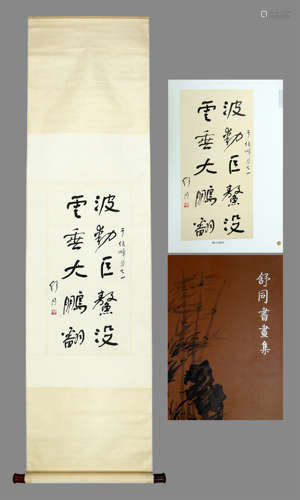 波動巨鰲没
雲垂大鵬翻
舒同
波動巨鰲没
雲垂大鵬翻
舒同
舒同書畫集